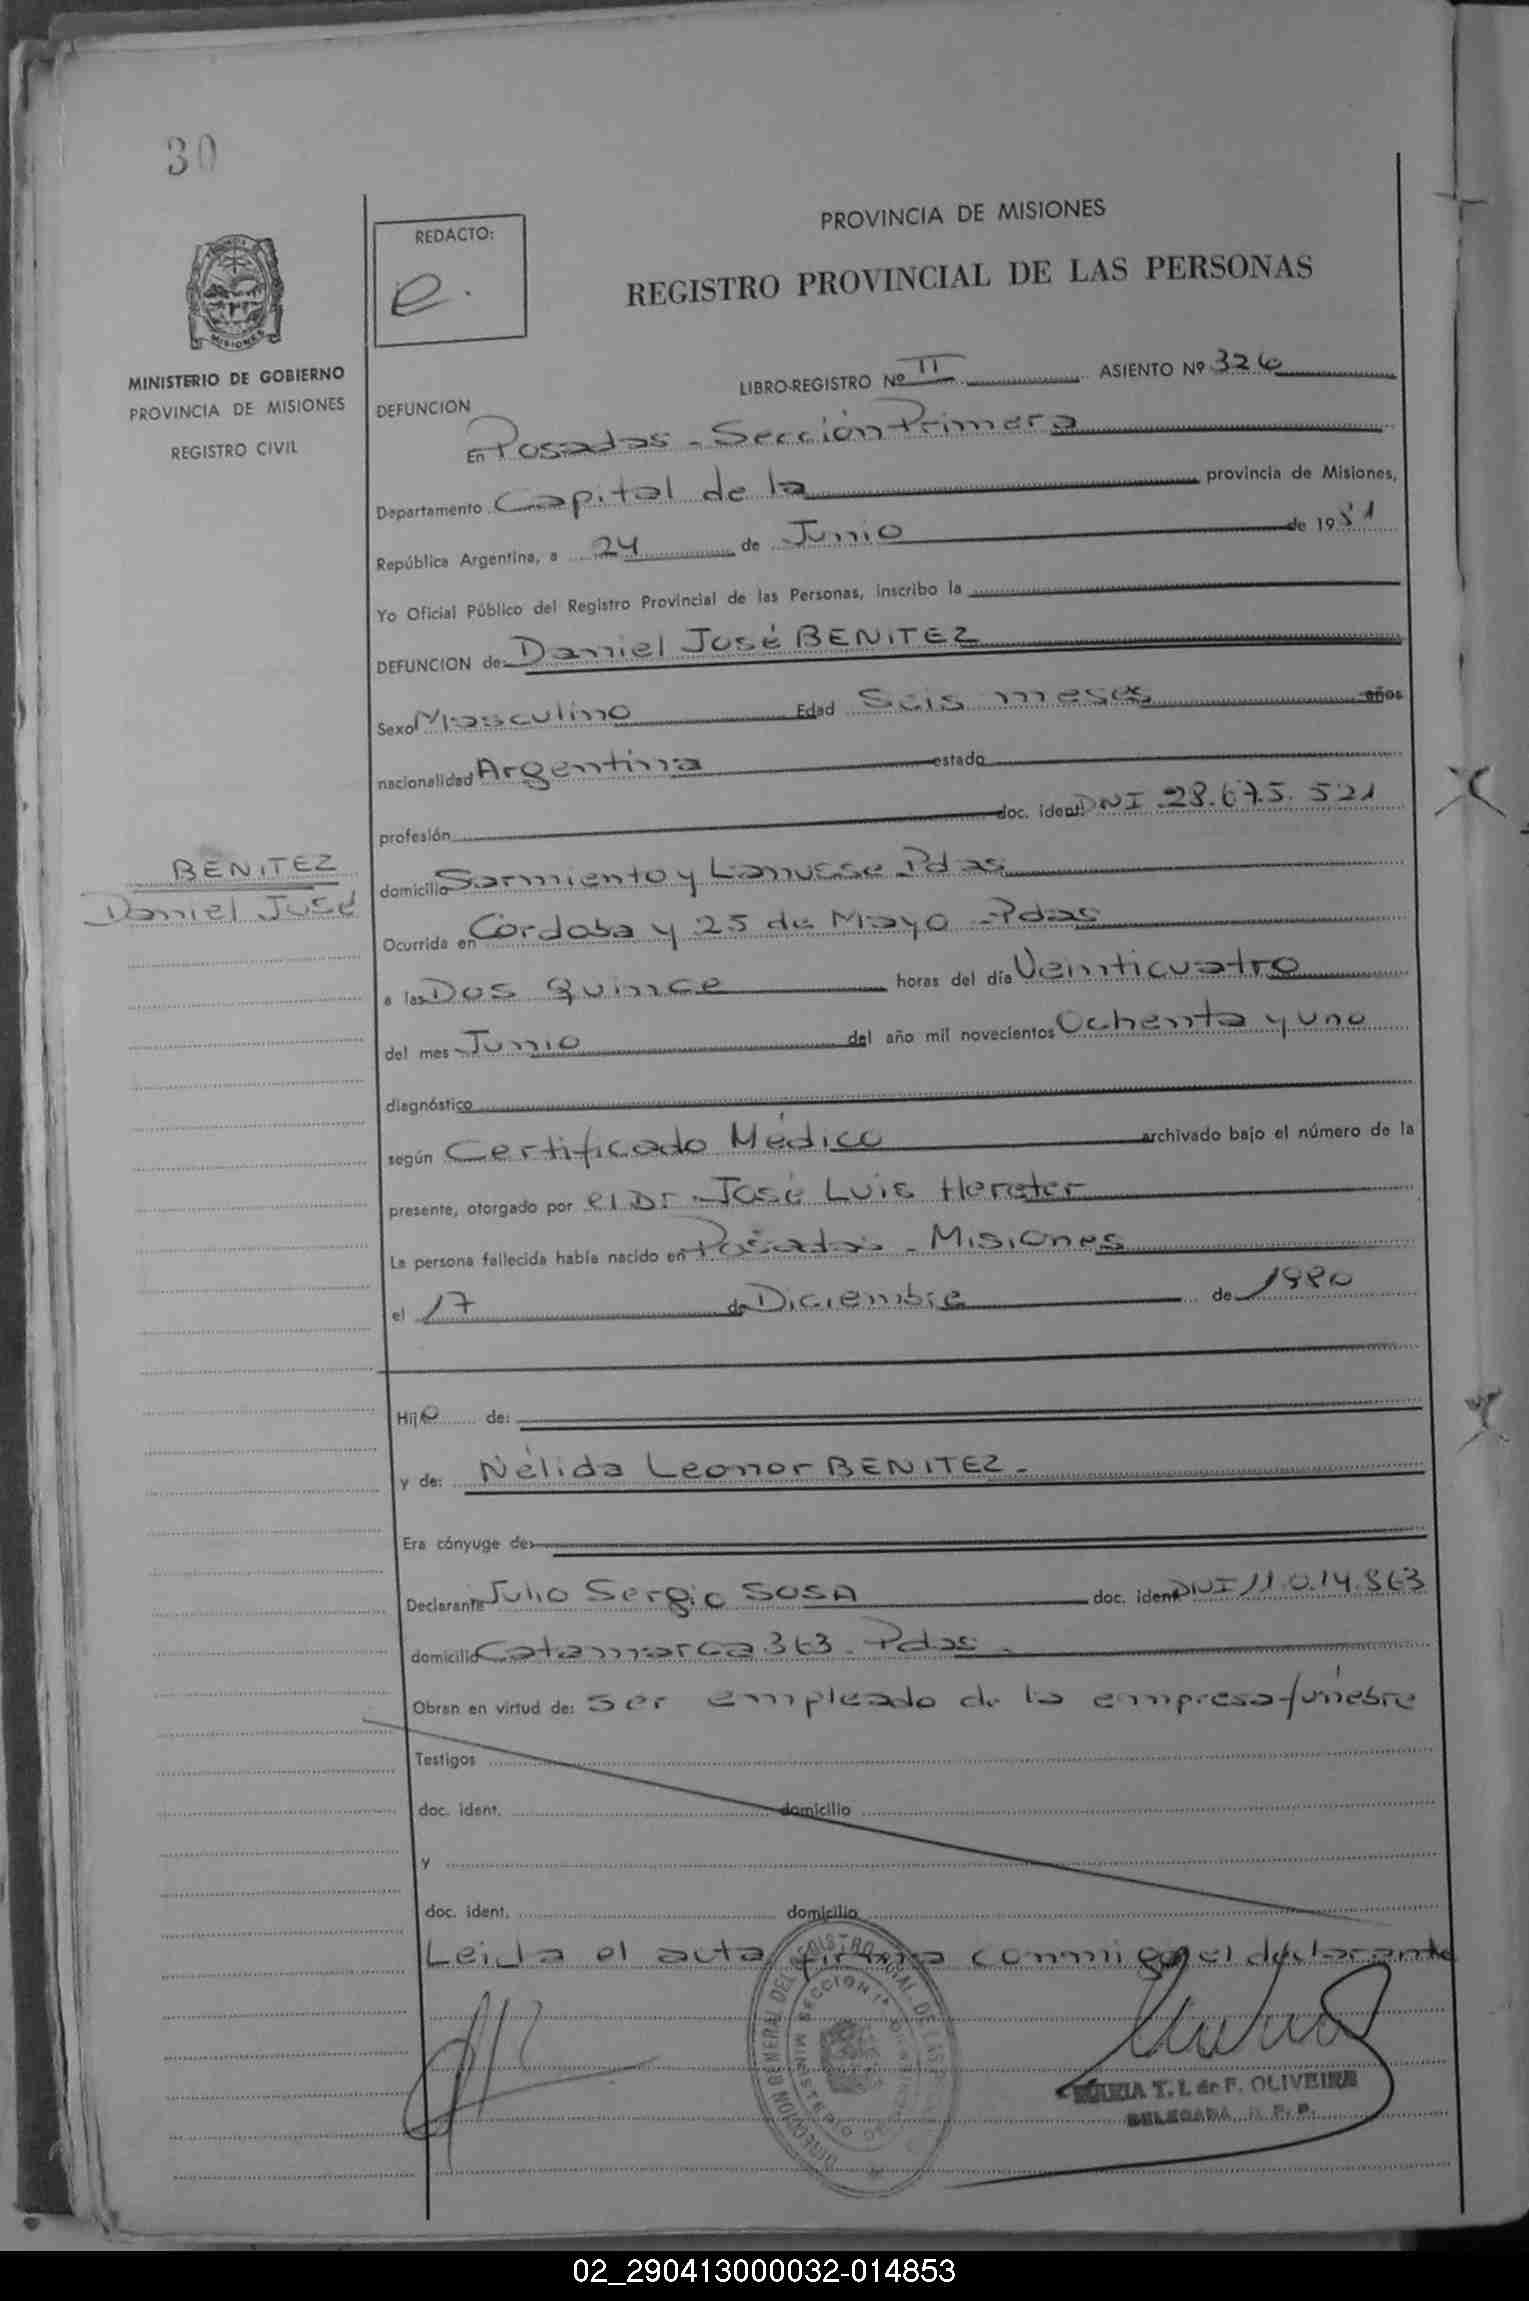 30
REDACTO:
e.
PROVINCIA DE MISIONES
REGISTRO PROVINCIAL DE LAS PERSONAS
MINISTERIO DE GOBIERNO
PROVINCIA DE MISIONES
REGISTRO CIVIL
LIBRO-REGISTRO Nº II ASIENTO Nº 326
DEFUNCION
En Posadas - Sección Primera
Departamento Capital de la provincia de Misiones,
República Argentina, a 24 de Junio de 1981
Yo Oficial Público del Registro Provincial de las Personas, inscribo la
DEFUNCION de: Daniel José BENITEZ
Sexo Masculino Edad Seis meses años
nacionalidad Argentina estado
profesión doc. ident. DNI 28.675.521
BENITEZ
Daniel José
domicilio Sarmiento y Lanusse Pdas
Ocurrida en Córdoba y 25 de Mayo - Pdas
a las Dos Quince horas del día Veinticuatro
del mes Junio del año mil novecientos Ochenta y uno
diagnóstico
según Certificado Médico archivado bajo el número de la
presente, otorgado por el Dr. José Luis Hereter
La persona fallecida había nacido en Posadas - Misiones
el 17 de Diciembre de 1980
Hijo de:
y de: Nélida Leonor BENITEZ -
Era cónyuge de:
Declarante Julio Sergio SOSA doc. ident. DNI 11.014.863
domicilio Catamarca 363 - Pdas -
Obran en virtud de: ser empleado de la empresa fúnebre
Testigos
doc. ident. domicilio
y
doc. ident. domicilio
Leida el acta firma conmigo el declarante
DIRECCION GENERAL DEL REGISTRO DE LAS
SECCION 1ª
MINISTERIO
MARIA T. I. de F. OLIVEIRA
DELEGADA R. P. P.
02_290413000032-014853